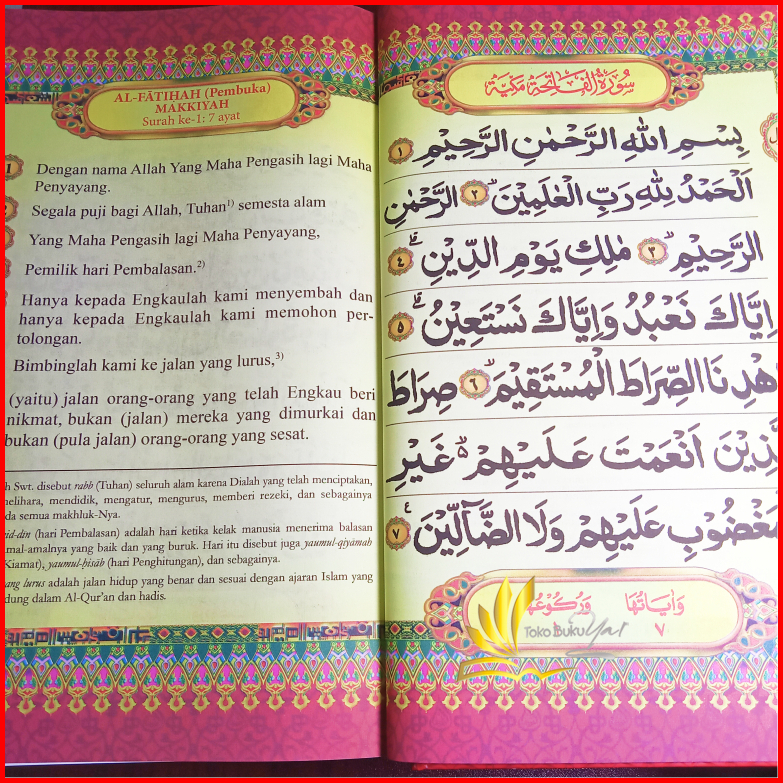 AL-FĀTIḤAH (Pembuka)
MAKKIYAH
Surah ke-1: 7 ayat
1 Dengan nama Allah Yang Maha Pengasih lagi Maha
Penyayang.
Segala puji bagi Allah, Tuhan¹⁾ semesta alam
Yang Maha Pengasih lagi Maha Penyayang,
Pemilik hari Pembalasan.²⁾
Hanya kepada Engkaulah kami menyembah dan
hanya kepada Engkaulah kami memohon per-
tolongan.
Bimbinglah kami ke jalan yang lurus,³⁾
(yaitu) jalan orang-orang yang telah Engkau beri
nikmat, bukan (jalan) mereka yang dimurkai dan
bukan (pula jalan) orang-orang yang sesat.
Swt. disebut rabb (Tuhan) seluruh alam karena Dialah yang telah menciptakan,
melihara, mendidik, mengatur, mengurus, memberi rezeki, dan sebagainya
semua makhluk-Nya.
id-dīn (hari Pembalasan) adalah hari ketika kelak manusia menerima balasan
amal-amalnya yang baik dan yang buruk. Hari itu disebut juga yaumul-qiyāmah
Kiamat), yaumul-ḥisāb (hari Penghitungan), dan sebagainya.
ang lurus adalah jalan hidup yang benar dan sesuai dengan ajaran Islam yang
dung dalam Al-Qur'an dan hadis.
سُورَةُ الْفَاتِحَةِ مَكِّيَّةٌ
بِسْمِ اللّٰهِ الرَّحْمٰنِ الرَّحِيْمِ ١
اَلْحَمْدُ لِلّٰهِ رَبِّ الْعٰلَمِيْنَۙ ٢ الرَّحْمٰنِ
الرَّحِيْمِۙ ٣ مٰلِكِ يَوْمِ الدِّيْنِۗ ٤
اِيَّاكَ نَعْبُدُ وَاِيَّاكَ نَسْتَعِيْنُۗ ٥
هْدِنَا الصِّرَاطَ الْمُسْتَقِيْمَۙ ٦ صِرَاطَ
لَّذِيْنَ اَنْعَمْتَ عَلَيْهِمْ ۙ غَيْرِ
مَغْضُوْبِ عَلَيْهِمْ وَلَا الضَّاۤلِّيْنَ ࣖ ٧
وَاٰيَاتُهَا وَرُكُوْعُهَا
٧
Toko Buku Yai